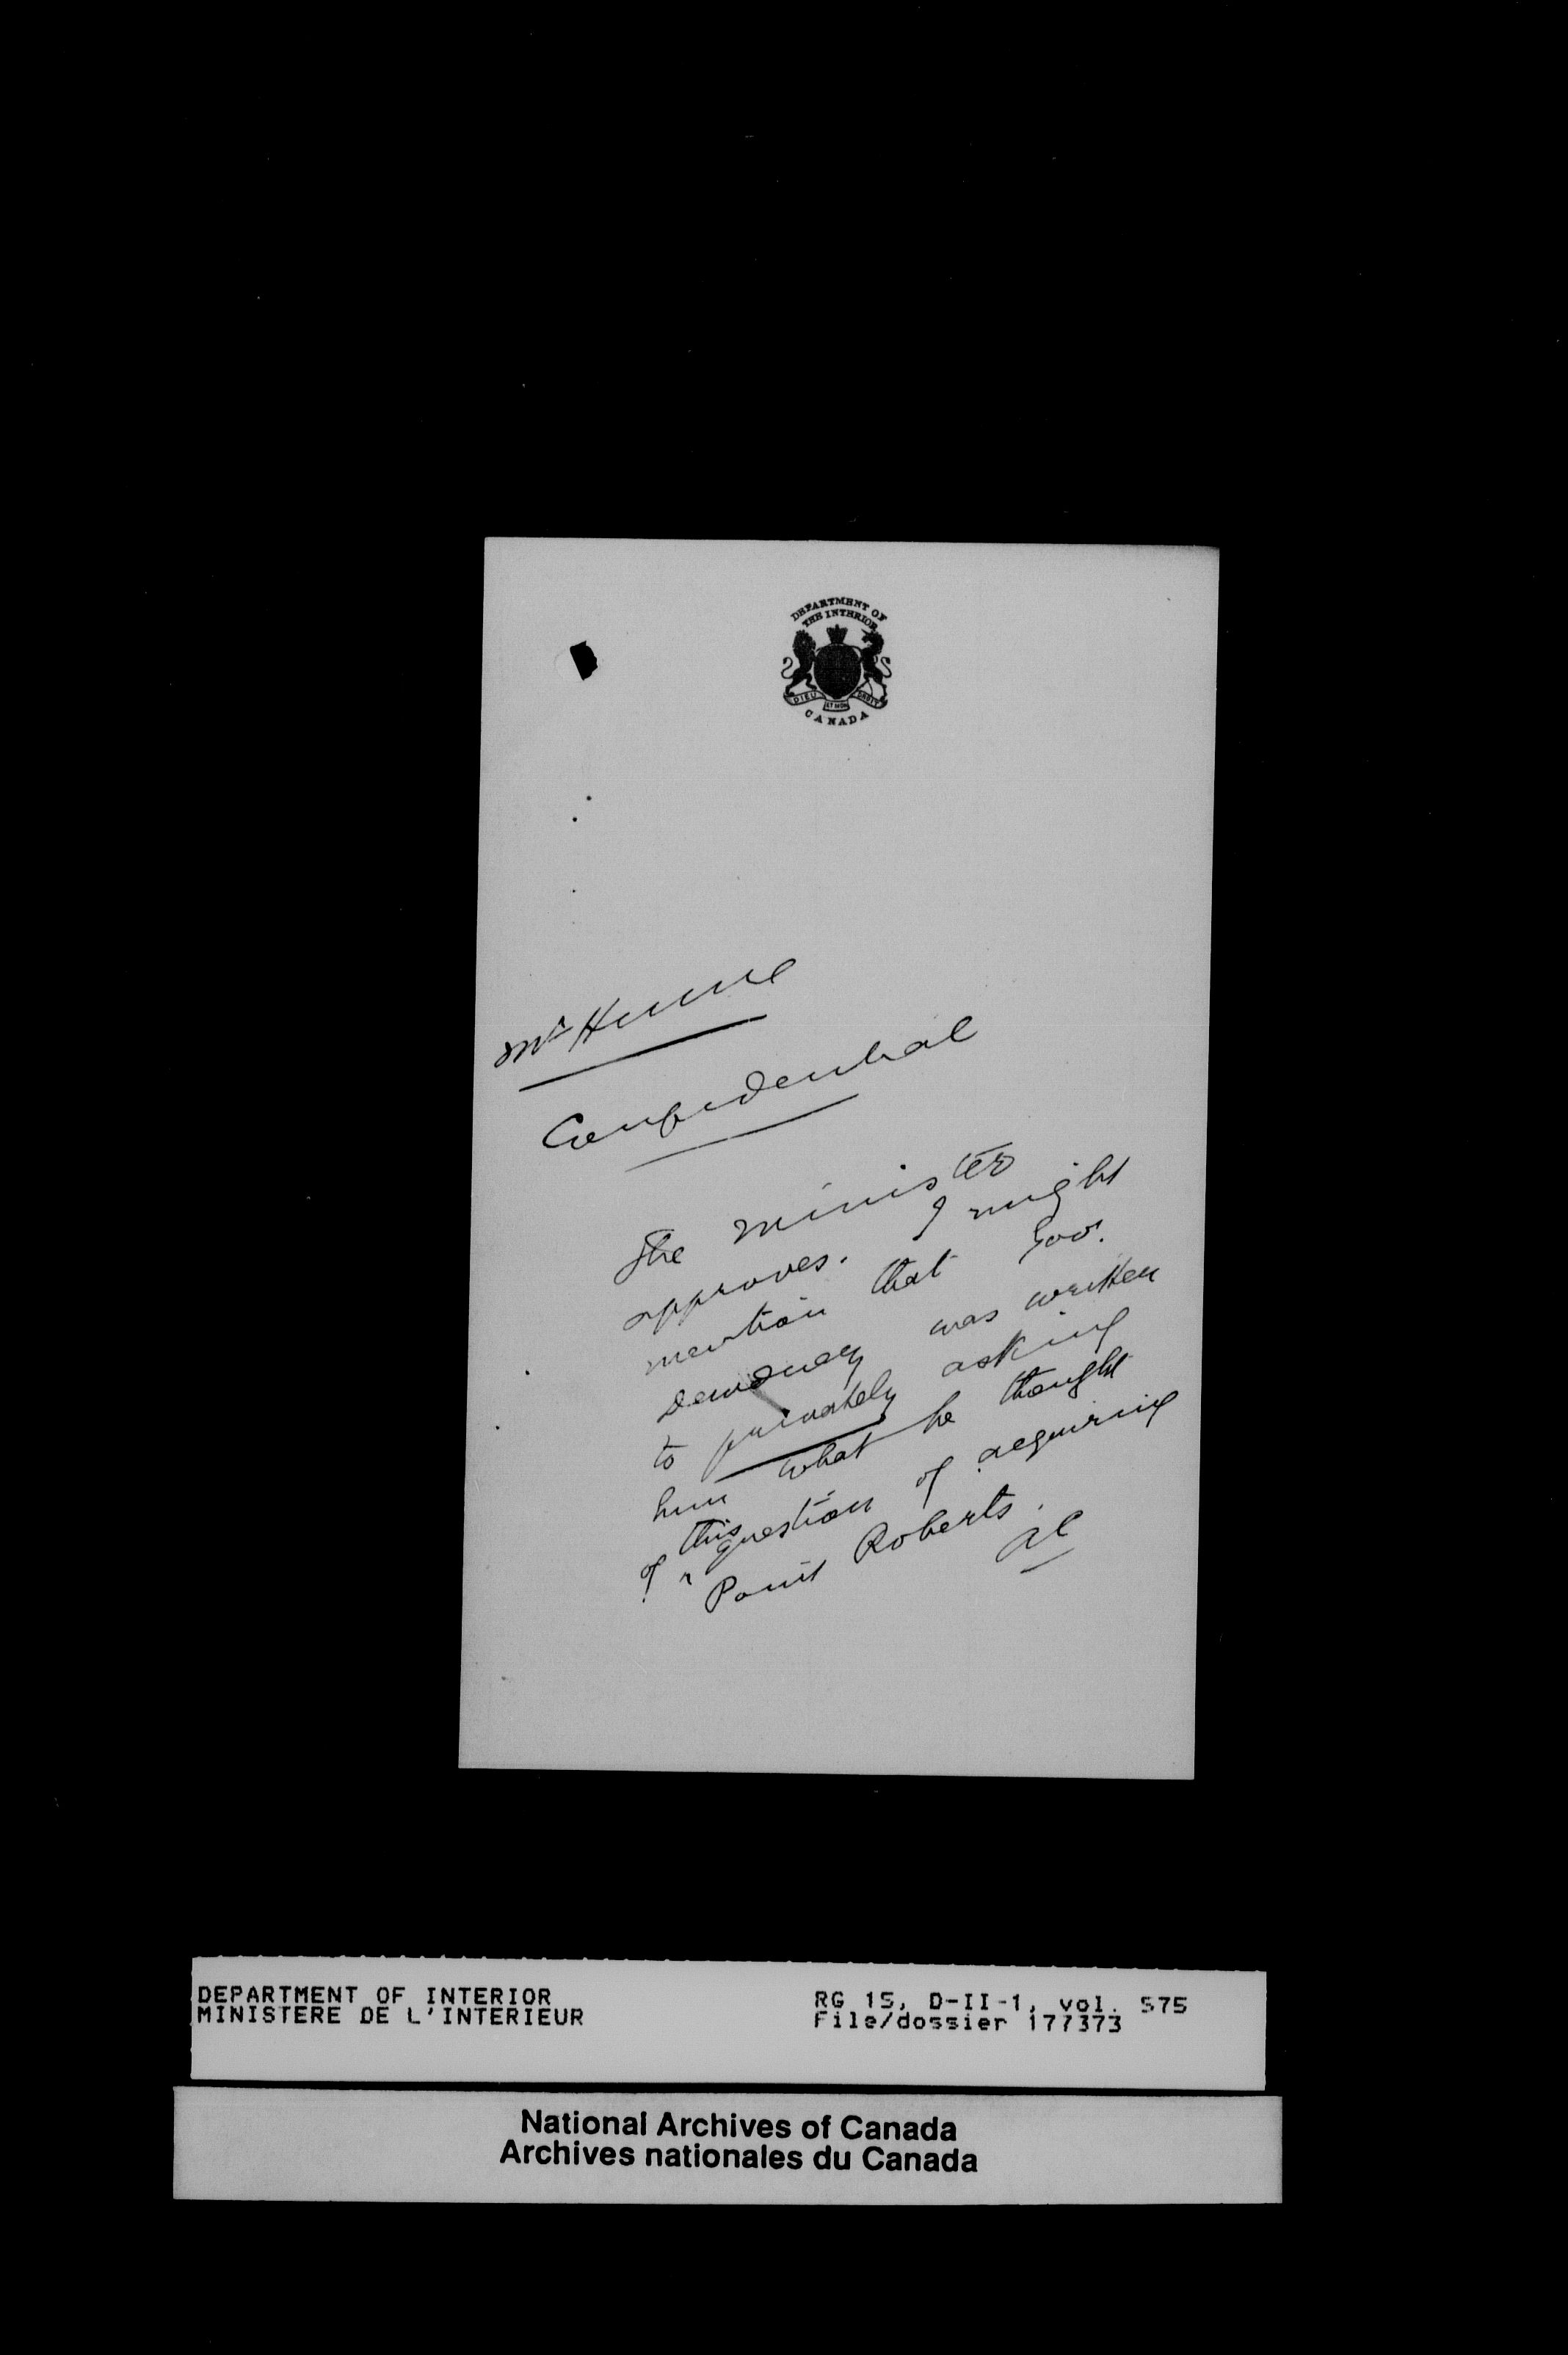 DEPARTMENT OF
THE INTERIOR
DIEU ET MON DROIT
CANADA
Mr Hume
Confidential
The Minister
approves. I might
mention that Gov.
Dewdney was written
to privately asking
him what he thought
of this question of acquiring
Point Roberts.
DEPARTMENT OF INTERIOR
MINISTERE DE L'INTERIEUR
RG 15, D-II-1, vol. 575
File/dossier 177373
National Archives of Canada
Archives nationales du Canada